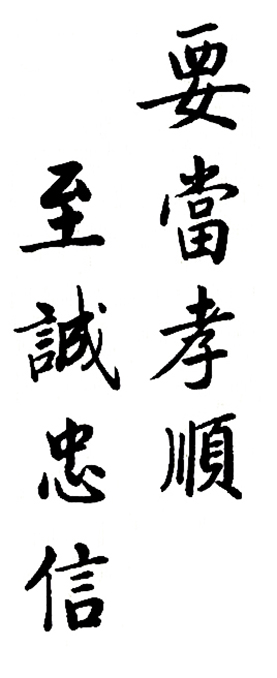 要當孝順
至誠忠信